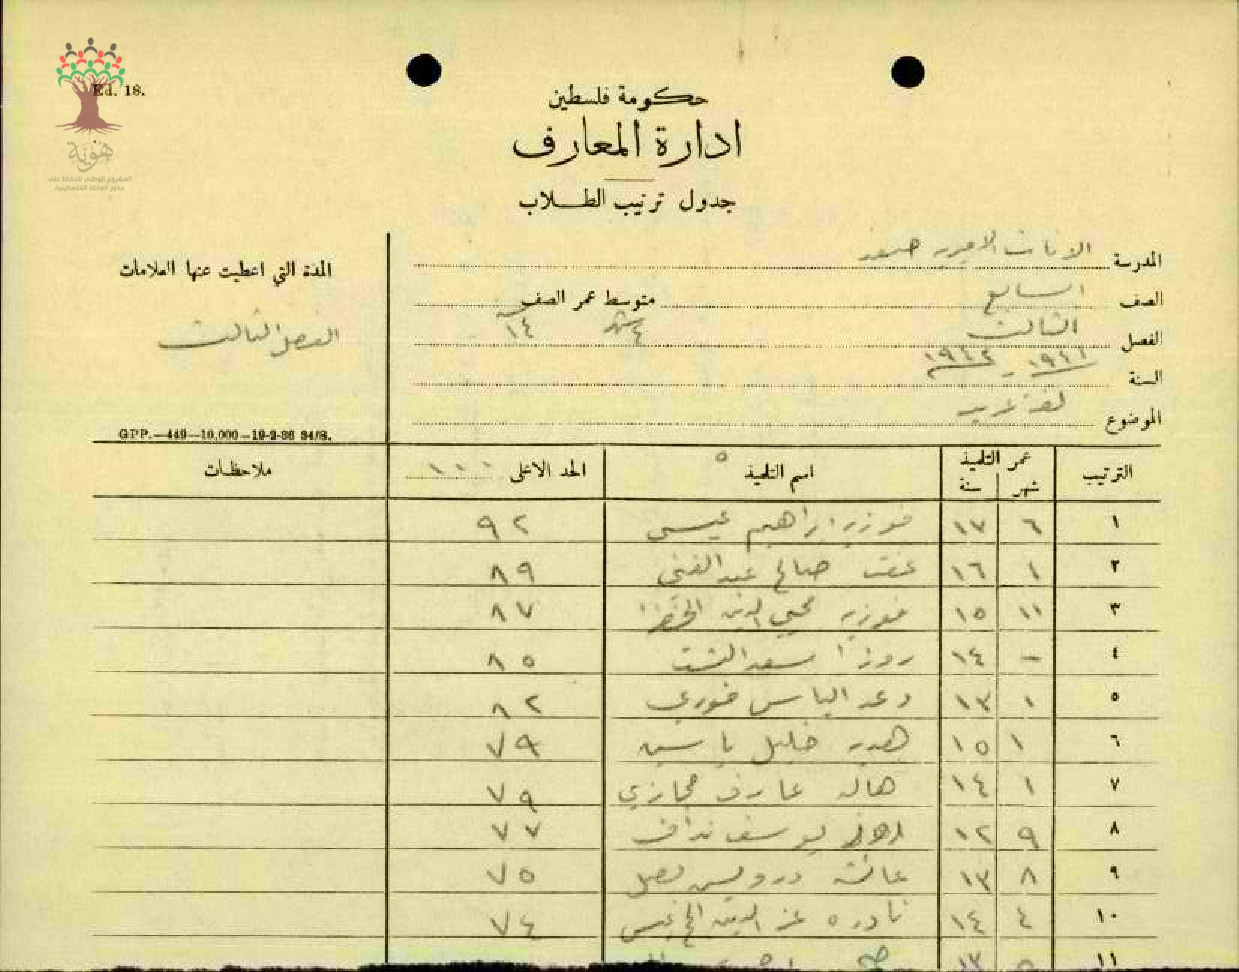 Ed. 18.
هوية
المشروع الوطني للحفاظ على
جذور العائلة الفلسطينية
حكومة فلسطين
ادارة المعارف
جدول ترتيب الطلاب
المدرسة الاناث الاميرية
الصف السابع متوسط عمر الصف ٤ شهر ١٤ سنة
الفصل الثالث
السنة ١٩٤١ - ١٩٤٢
الموضوع
المدة التي اعطيت عنها العلامات
الفصل الثالث
GPP.—449—10,000—19-2-36 34/8.
الترتيب عمر التلميذ شهر سنة اسم التلميذ الحد الاعلى ١٠٠ ملاحظات
١ ٦ ١٧ فوزيه ابراهيم عيسى ٩٢
٢ ١ ١٦ عفت صالح عبد الغني ٨٩
٣ ١١ ١٥ فوزيه محيي الدين ٨٧
٤ – ١٤ روزا سعد ٨٥
٥ ١ ١٣ دعد الياس خوري ٨٢
٦ ١ ١٥ هديه خليل ياسين ٧٩
٧ ١ ١٤ هاله عارف حجازي ٧٩
٨ ٩ ١٢ يوسف نداف ٧٧
٩ ٨ ١٣ عائشه درويش ٧٥
١٠ ٤ ١٤ نادره عز الدين ٧٤
١١ ١٣